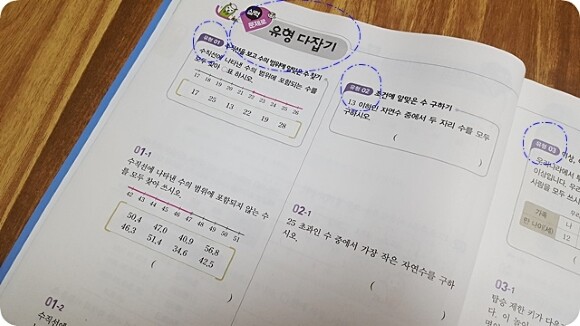 실력
문제로
유형 다잡기
유형 01 수직선을 보고 수의 범위에 알맞은 수 찾기
수직선에 나타낸 수의 범위에 포함되는 수를
모두 찾아 ○표 하시오.
17 18 19 20 21 22 23 24 25 26
17 25 13 22 19 28
01-1
수직선에 나타낸 수의 범위에 포함되지 않는 수
를 모두 찾아 쓰시오.
42 43 44 45 46 47 48 49 50 51
50.4 47.0 40.9 56.8
46.3 51.4 34.6 42.5
( )
01-2
수직선에
유형 02 조건에 알맞은 수 구하기
13 이하인 자연수 중에서 두 자리 수를 모두
구하시오.
( )
02-1
25 초과인 수 중에서 가장 작은 자연수를 구하
시오.
( )
유형 03 이상,
우리나라에서 투
이상입니다. 우리
사람을 모두 쓰시
가족
만 나이(세) 12
03-1
탑승 제한 키가 다음
다. 이 놀이